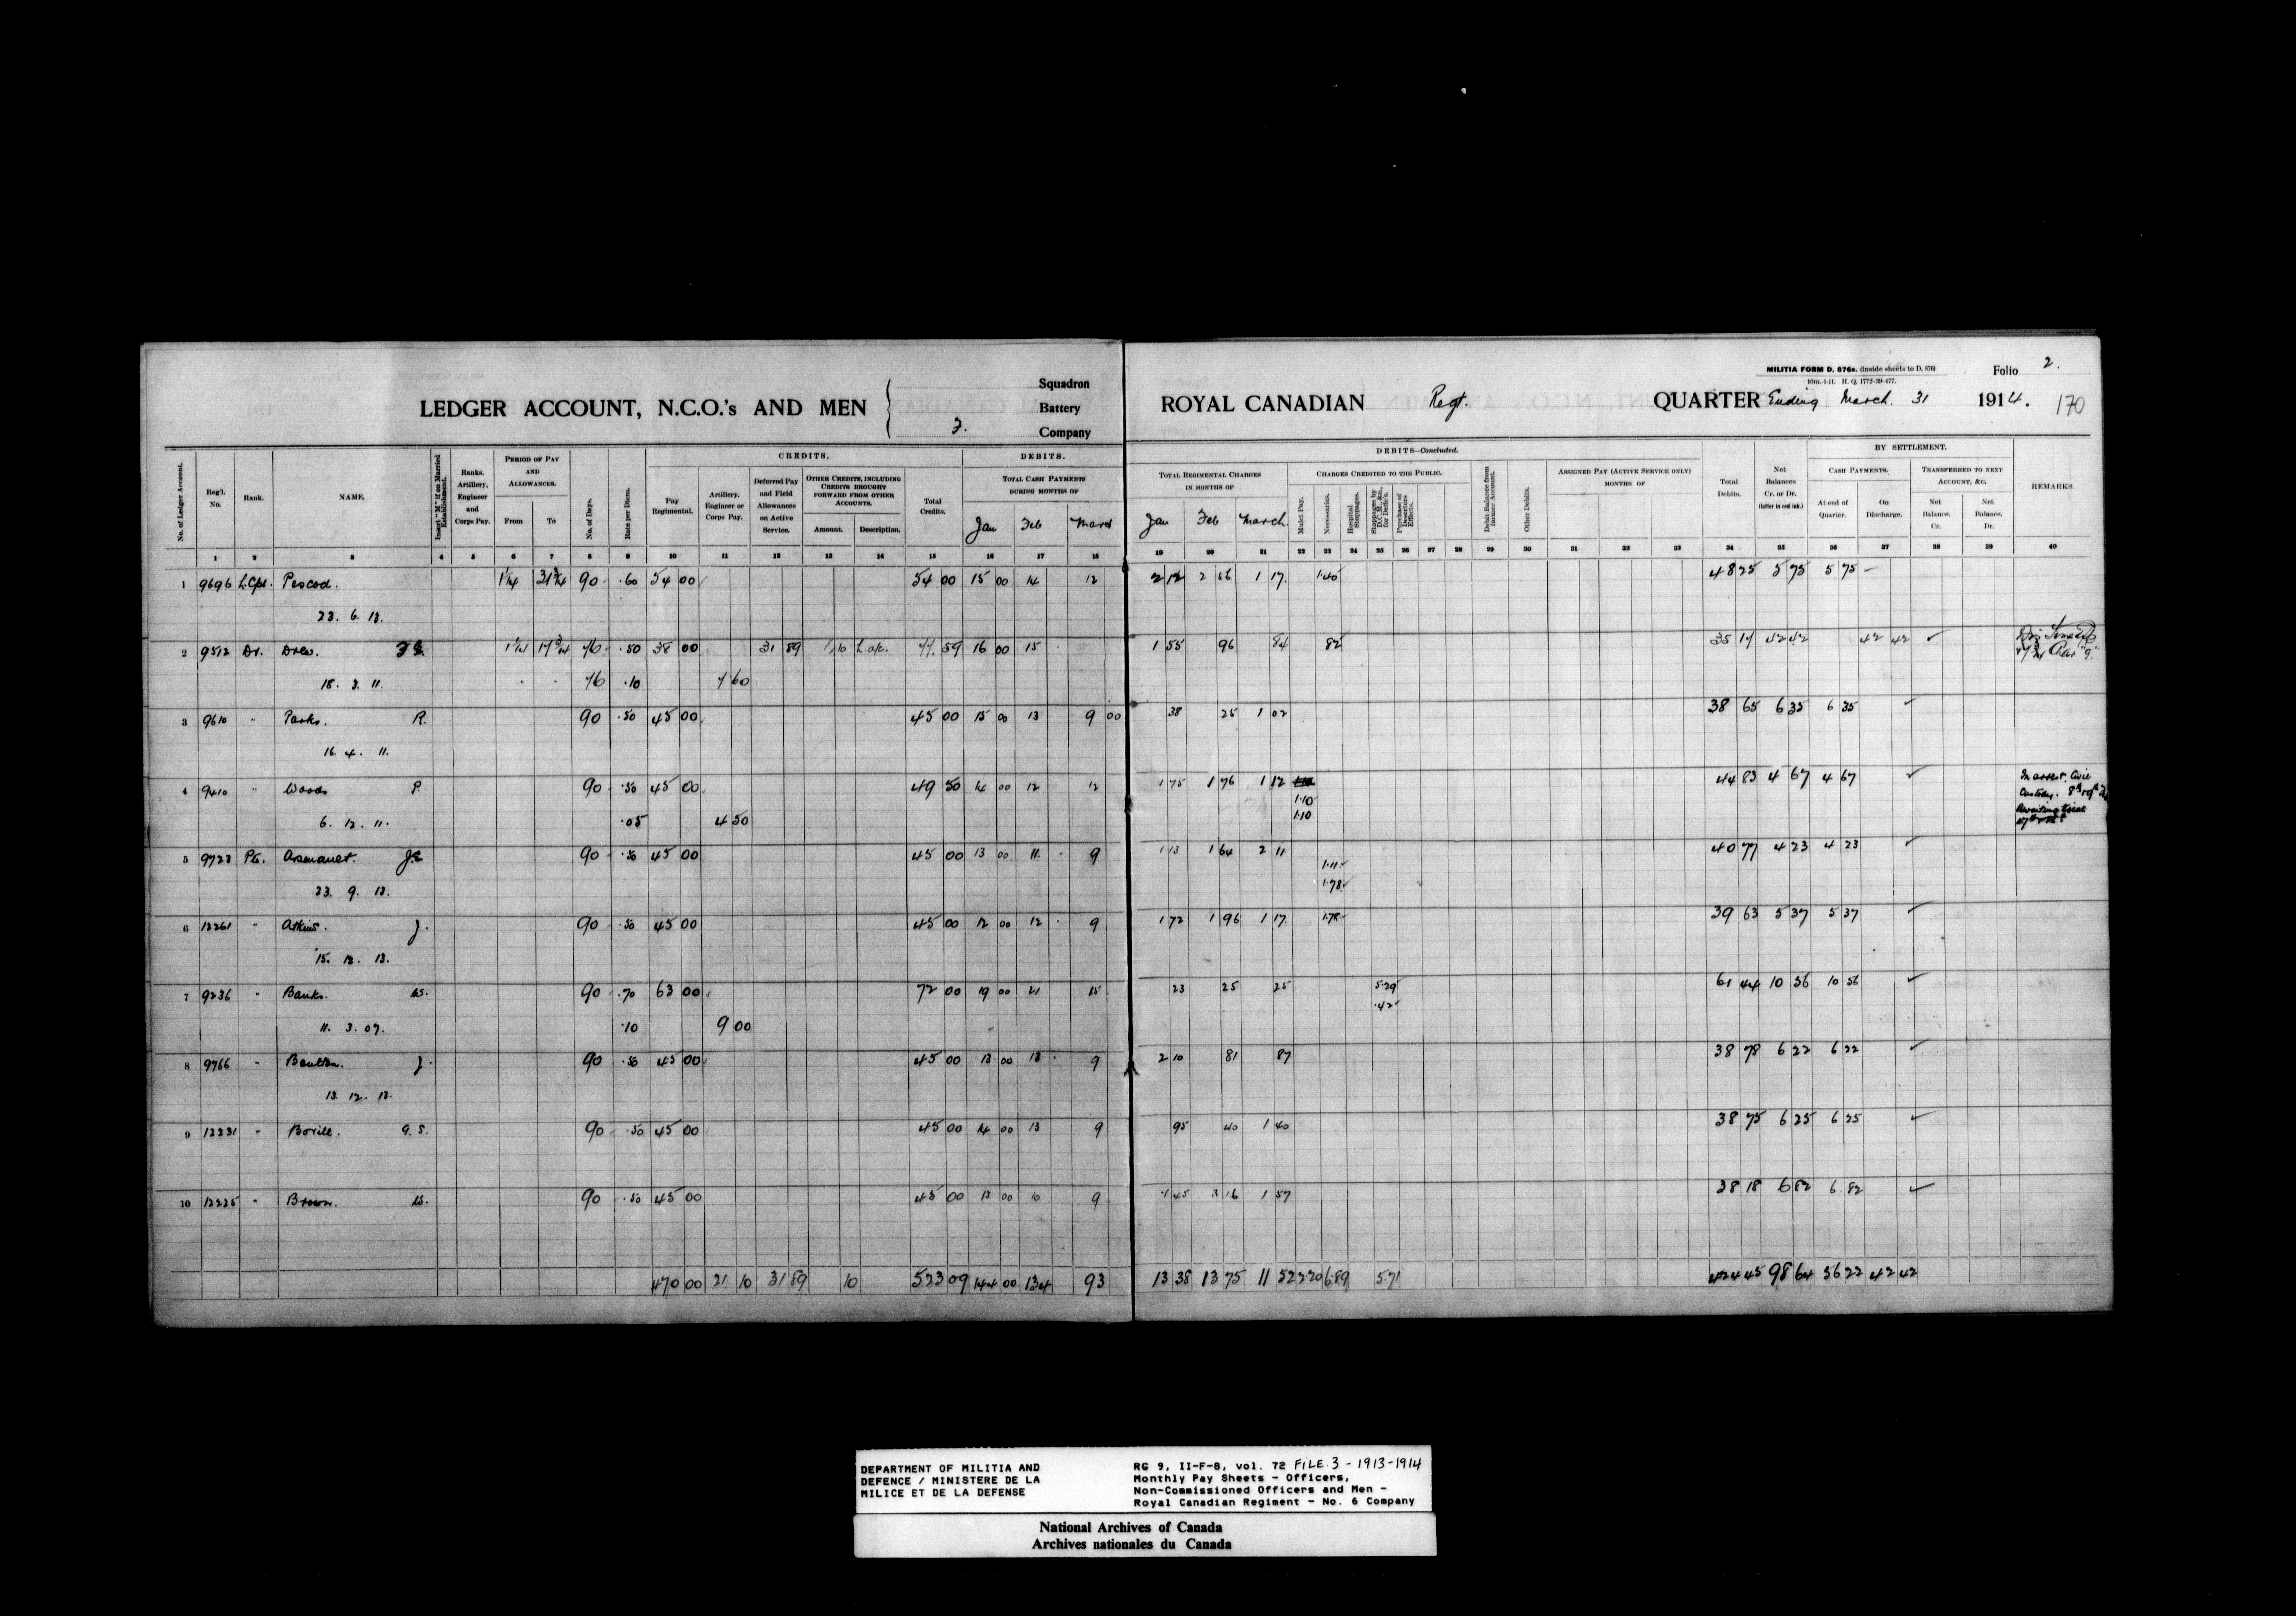 MILITIA FORM D. 876a. (inside sheets to D. 876)
10m.-1-11. H. Q. 1772-39-477.
Folio 2.
LEDGER ACCOUNT, N.C.O.'s AND MEN
Squadron
Battery
Company
ROYAL CANADIAN Regt.
QUARTER Ending March 31 1914.
170
No. of Ledger Account.
Reg'l. No.
Rank.
NAME.
Insert "M" if on Married Establishment.
Ranks, Artillery, Engineer and Corps Pay.
PERIOD OF PAY AND ALLOWANCES.
From To
No. of Days.
Rate per Diem.
CREDITS.
Pay Regimental.
Artillery, Engineer or Corps Pay.
Deferred Pay and Field Allowances on Active Service.
OTHER CREDITS, INCLUDING CREDITS BROUGHT FORWARD FROM OTHER ACCOUNTS.
Amount. Description.
Total Credits.
DEBITS.
TOTAL CASH PAYMENTS DURING MONTHS OF
Jan Feb March
DEBITS—Concluded.
TOTAL REGIMENTAL CHARGES IN MONTHS OF
Jan Feb March
CHARGES CREDITED TO THE PUBLIC.
Mulct Pay.
Necessaries.
Hospital Stoppages.
Purchase of Deserters Effects.
Debit Balance from former Account.
Other Debits.
ASSIGNED PAY (ACTIVE SERVICE ONLY) MONTHS OF
Total Debits.
Net Balances Cr. or Dr. (latter in red ink.)
BY SETTLEMENT.
CASH PAYMENTS.
At end of Quarter.
On Discharge.
TRANSFERRED TO NEXT ACCOUNT, &C.
Net Balance. Cr.
Net Balance. Dr.
REMARKS.
1 2 3 4 5 6 7 8 9 10 11 12 13 14 15 16 17 18 19 20 21 22 23 24 25 26 27 28 29 30 31 32 33 34 35 36 37 38 39 40
1 9696 L.Cpl. Pescod. 90 .60 54 00 54 00 15 00 14 12 2 12 2 56 1 17 1.40 48 25 5 75 5 75
23. 6. 13.
2 9512 Dr. Drew. 76 .50 38 00 31 89 10 77.59 16 00 15 1 55 96 84 82 35 17 42 42 42 42
18. 3. 11. 76 .10 7 60
3 9610 " Parks. R. 90 .50 45 00 45 00 15 00 13 9 00 38 25 1 02 38 65 6 35 6 35
16. 4. 11.
4 9410 " Woods P 90 .50 45 00 49 50 14 00 12 12 1 75 1 76 1 12 44 83 4 67 4 67
In arrest. Civil Custody.
Awaiting trial
1.10
1.10
6. 12. 11. .05 4 50
5 9723 Pte. Arsenault. J.E 90 .50 45 00 45 00 13 00 11 9 1 13 1 64 2 11 40 77 4 23 4 23
1.11
1.78
23. 9. 13.
6 12261 " Atkins. J. 90 .50 45 00 45 00 12 00 12 9 1 72 1 96 1 17 1.78 39 63 5 37 5 37
15. 12. 13.
7 9236 " Banks. W. 90 .70 63 00 72 00 19 00 21 15 23 25 25 5.29 61 44 10 56 10 56
.42
11. 3. 07. .10 9 00
8 9766 " Boulton. J. 90 .50 45 00 45 00 13 00 13 9 2 10 81 87 38 78 6 22 6 22
13. 12. 13.
9 12231 " Bovill. G. S. 90 .50 45 00 45 00 14 00 13 9 95 40 1 40 38 75 6 25 6 25
10 12225 " Brown. W. 90 .50 45 00 45 00 13 00 10 9 1 45 3 16 1 57 38 18 6 82 6 82
470 00 21 10 31 89 10 523 09 144 00 134 93 13 38 13 75 11 52 2 20 6.89 5.71 424 45 98 64 56 22 42 42
DEPARTMENT OF MILITIA AND
DEFENCE / MINISTERE DE LA
MILICE ET DE LA DEFENSE
RG 9, II-F-8, vol. 72 FILE 3 - 1913-1914
Monthly Pay Sheets - Officers,
Non-Commissioned Officers and Men -
Royal Canadian Regiment - No. 6 Company
National Archives of Canada
Archives nationales du Canada